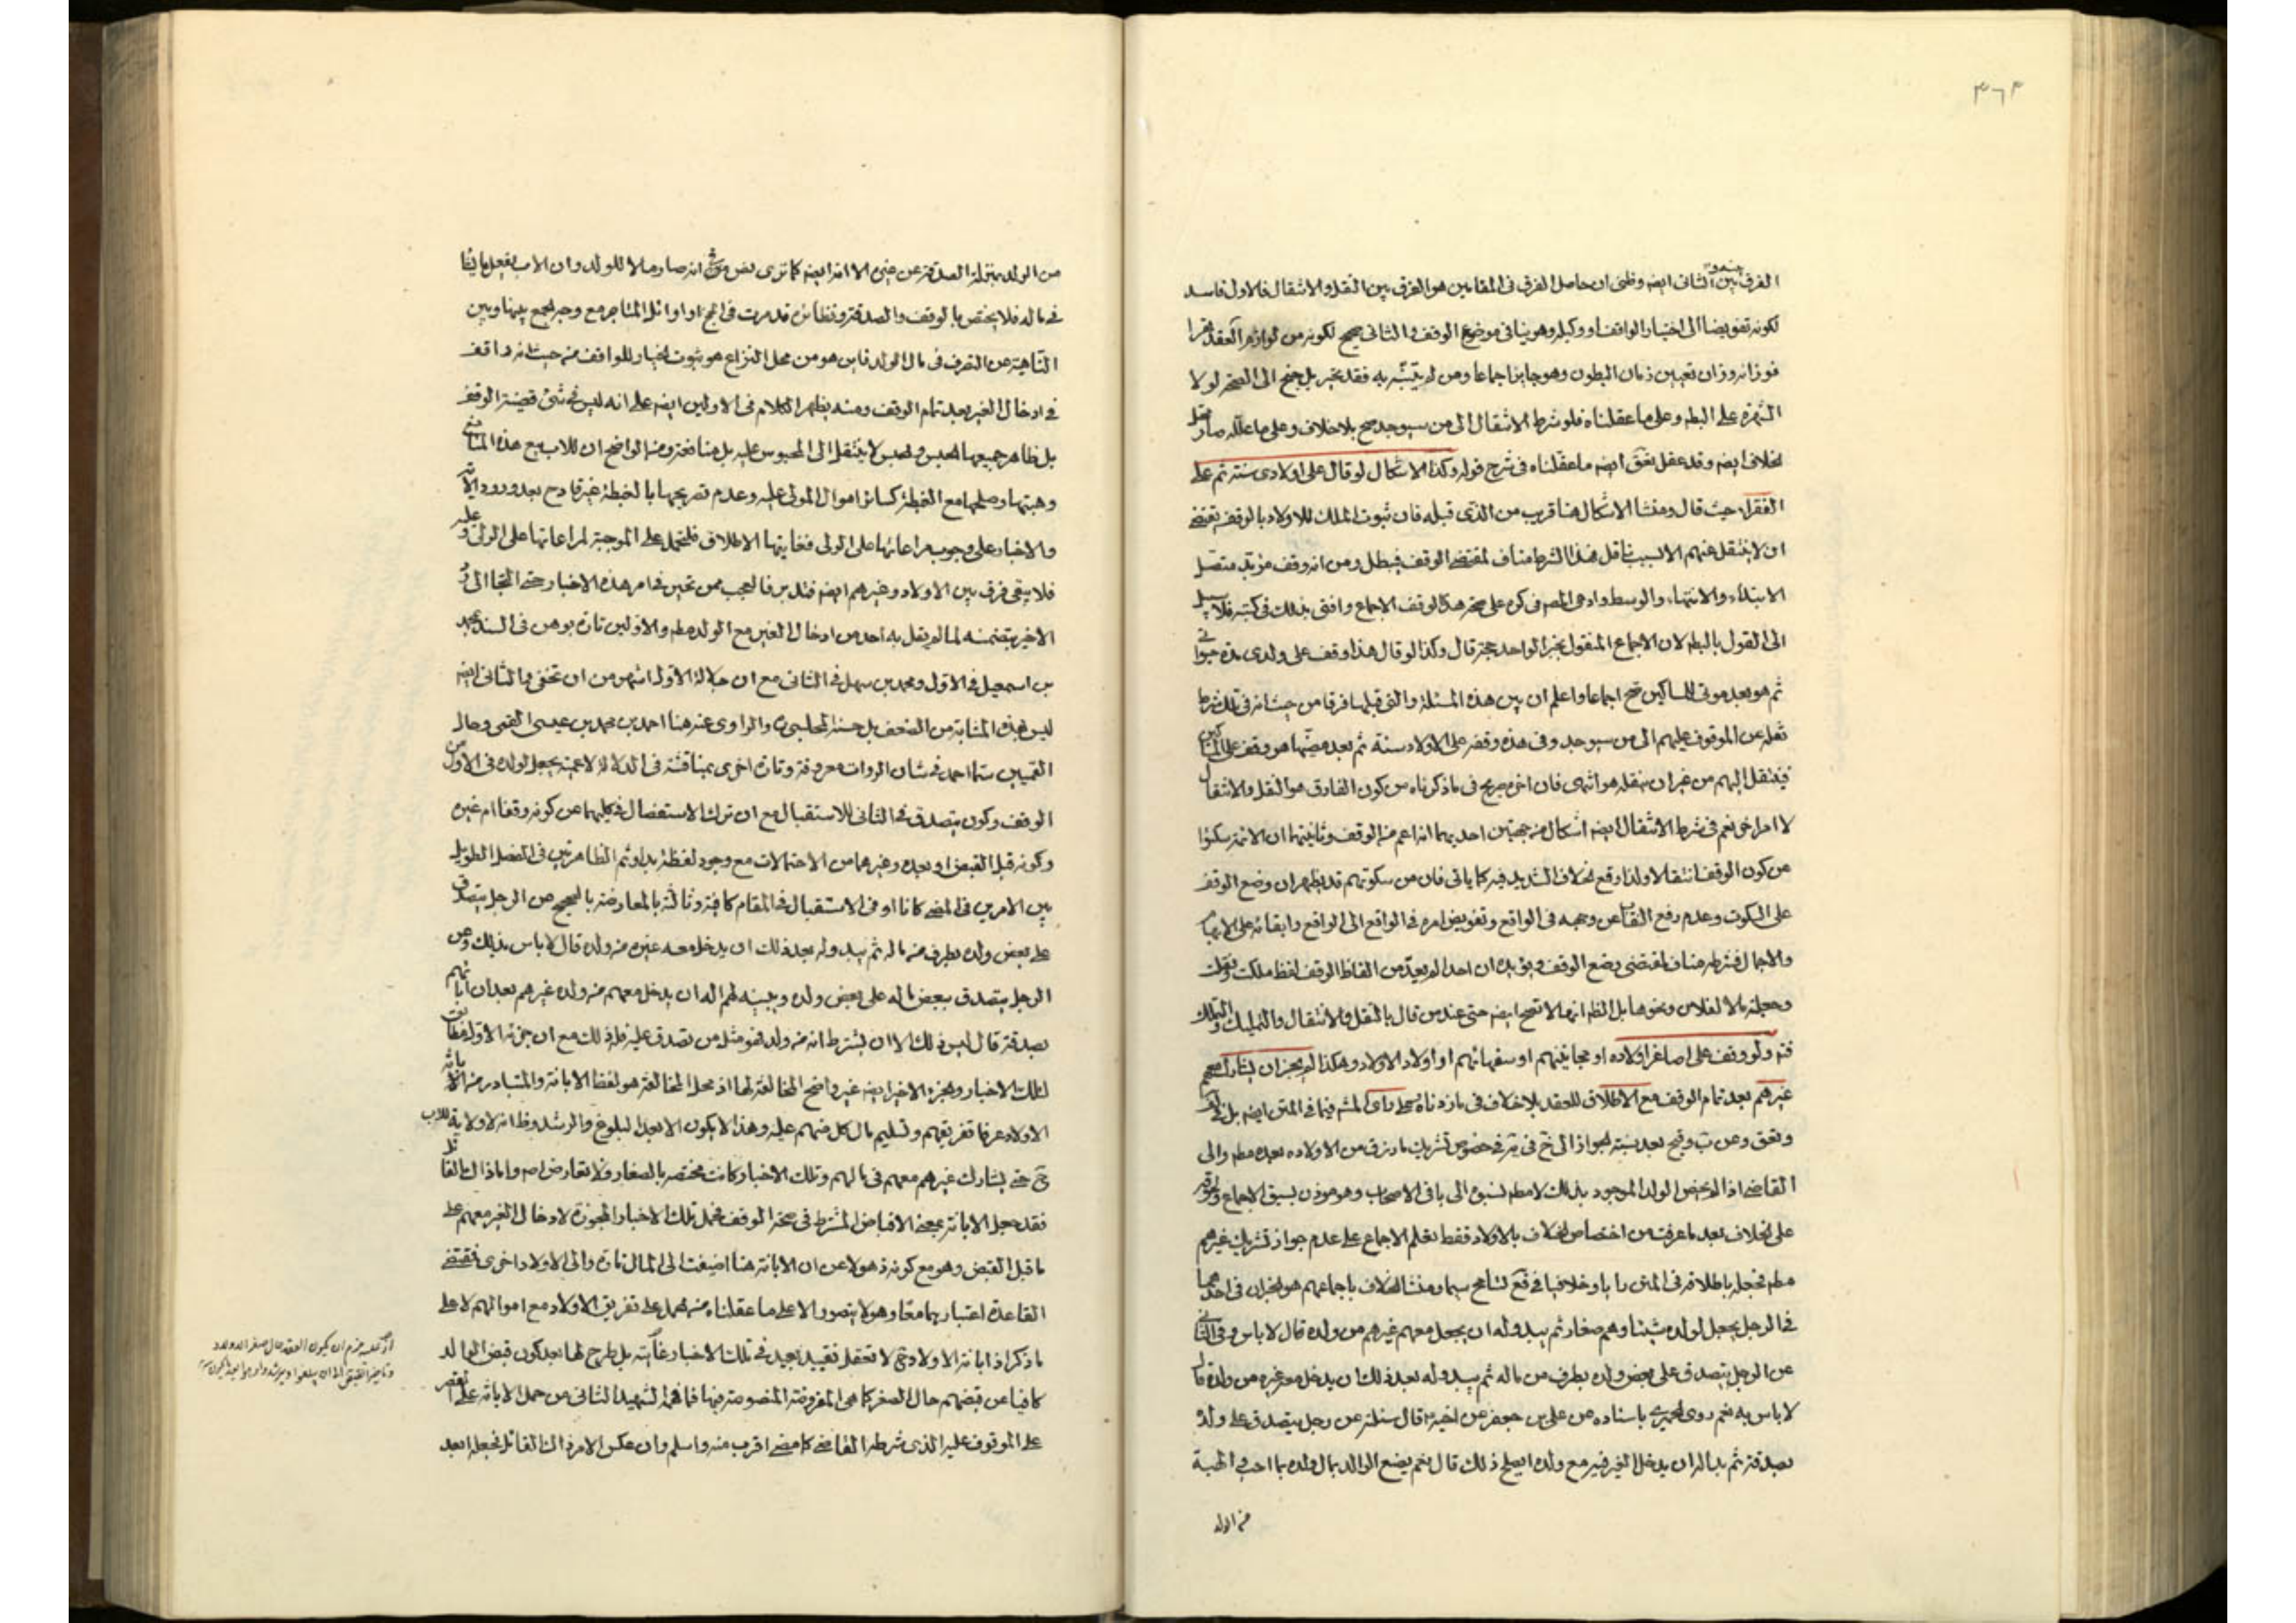 ٤٦٣
الفرق بين الثانى ايضا وظنى ان حاصل الفرق فى المقامين هو الفرق بين النقل والانتقال فالاول فاسد
لكونه تفويضا الى اختيار الواقف او وكيله وهو ينافى موضوع الوقف والثانى صحيح لكونه من لوازم العقد
فوزانه وزان تعيين زمان البطون وهو جايز اجماعا ومن لم يتنبه به فقد تحير بل جنح الى الصحة لولا
الشهرة على البطه وعلى ما عقلناه فلو شرط الانتقال الى من سيوجد صح بلا خلاف وعلى ما علله صار
لخلاف ايضه وقد عقل بعض ايضه ما عقلناه فى شرح قوله وكذا الاشكال لو قال على اولادى سنة ثم على
الفقراء حيث قال ومنشا الاشكال هنا قريب من الذى قبله فان ثبوت الملك للاولاد بالوقف يقتضى
ان لا ينتقل عنهم الا لسبب ناقل فهذا الشرط مناف لمقتضى الوقف فيبطل ومن انه وقف مؤبد متصل
الابتداء والانتهاء والوسط وادعى المص فى كره على صحة هذا الوقف الاجماع وافتى بذلك فى كتبه فلا سبيل
الى القول بالبطه لان الاجماع المنقول بخبر الواحد حجة قال وكذا لو قال هذا وقف على ولدى مدة حيوتى
ثم هو بعد موتى للمساكين صح اجماعا واعلم ان بين هذه المسئلة والتى قبلها فرقا من حيث انه فى تلك شرط
نقله عن الموقوف عليهم الى من سيوجد وفى هذه وقفه على الاولاد سنة ثم بعد مضيها هو وقف على المساكين
فينتقل اليهم من غير ان ينقله هو انتهى فان اخره صريح فى ما ذكرناه من كون الفارق هو النقل والانتقال
لا امر اخر نعم فى شرط الانتقال ايضه اشكال من جهتين احديهما انه اعم من الوقف وثانيتهما ان الائمة سكتوا
من كون الوقف انتقالا ولذا وقع الخلاف الشديد فيه كما ياتى فان من سكوتهم قد يظهر ان وضع الوقف
على السكوت وعدم رفع النقاب عن وجهه فى الواقع وتفويض امره فى الواقع الى الواقع وابقائه على الابهام
والاجمال فشرطه مناف لمقتضى وضع الوقف ويؤيده ان احدا لم يعد من الفاظ الوقف لفظ ملكت ونقلت
وجعلته مالا لفلان ونحوها بل الظه انها لا تصح ايضه حتى عند من قال بالنقل والانتقال والتمليك والتملك
فته ولو وقف على اصاغر اولاده او مجانينهم او سفهائهم او اولاد الاولاد وهكذا لم يجز ان يشارك معهم
غيرهم بعد تمام الوقف مع الاطلاق للعقد بلا خلاف فى ما زدناه على راى المشه فيما فى المتن ايضه بل
القاضى اذا لم يخص الولد الموجود بذلك لا مطه لسبق الى باقى الاصحاب وهو موذن بسبق الاجماع
على الخلاف بعد ما عرفت من اختصاص الخلاف بالاولاد فقط تعلم الاجماع على عدم جواز تشريك غيرهم
فى الرجل يجعل لولده شيئا وهم صغار ثم يبدو له ان يجعل معهم غيرهم من ولده قال لا باس وفى الثانى
عن الرجل يتصدق على بعض ولده بطرف من ماله ثم يبدو له بعد ذلك ان يدخل معه غيره من ولده قال
لا باس به نعم روى الحميرى باسناده عن على بن جعفر عن اخيه قال سئلته عن رجل يتصدق على ولده
بصدقة ثم بدا له ان يدخل الغير فيه مع ولده ايصلح ذلك قال نعم يصنع الوالد بمال ولده ما احب والهبة
من الولد
من الولد بمنزلة الصدقة عن غيره الا انه ايضه كما ترى نص انه صار مالا للولد وان الاب يفعل ما يشاء
فى ماله فلا يختص بالوقف والصدقة ونظائره قد مرت فى الحج او اوائل المتاجر مع وجه الجمع بينها وبين
الناهية عن التصرف فى مال الولد فاين هو من محل النزاع هو ثبوت الخيار للواقف من حيث انه واقف
فى ادخال الغير بعد تمام الوقف ومنه يظهر الكلام فى الاولين ايضه على انه ليس فى شئ قضية الوقف
بل ظاهر جميعها الحبس والحبس لا ينتقل الى المحبوس عليه بل منافعه ومن الواضح ان للاب بيع هذه المنافع
وهبتها وصلحها مع الغبطة كسائر اموال المولى عليه وعدم تصريحها بالغبطة غير قادح بعد ورود
والاخبار على وجوب مراعاتها على الولى فغايتها الاطلاق فلتحمل على الموجبة لمراعاتها على الولى
فلا يبقى فرق بين الاولاد وغيرهم ايضه فتدبر فالعجب ممن تحير فى امر هذه الاخبار حتى التجا الى
الاخير بتضمنه لما لم يقل به احد من ادخال الغير مع الولد مطه والاولين تارة بوهن فى السند بمحمد
بن اسمعيل فى الاول ومحمد بن سهل فى الثانى مع ان جلالة الاول اشهر من ان تخفى والثانى ايضه
ليس بهذه المثابة من الضعف بل حسنه المجلسى والراوى عنه هنا احمد بن محمد بن عيسى القمى وحال
القميين سيما احمد فى شان الروات معروفة وتارة اخرى بمناقشة فى الدلالة لاعمية يجعل لولده فى الاول من
الوقف وكون يتصدق فى الثانى للاستقبال مع ان ترك الاستفصال فى كليهما عن كونه وقفا ام غيره
وكونه قبل القبض او بعده وغيرهما من الاحتمالات مع وجود لفظة يبدو وثم الظاهرتين فى الفصل الطويل
بين الامرين فى المضى كانا او فى الاستقبال فى المقام كافية وثالثة بالمعارضة بالصحيح عن الرجل يتصدق
على بعض ولده بطرف من ماله ثم يبدو له بعد ذلك ان يدخل معه غيره من ولده قال لا باس بذلك وعن
الرجل يتصدق ببعض ماله على بعض ولده ويبينه لهم اله ان يدخل معهم من ولده غيرهم بعد ان ابانهم
بصدقة قال ليس ذلك الا ان يشترط انه من ولد فهو مثل من تصدق عليه فله ذلك مع ان جزئه الاول
لتلك الاخبار وجزئه الاخير ايضه غير واضح المخالفة لها اذ محل المخالفة هو لفظ الابانة والمتبادر من
الاولاد عرفا تفريقهم وتسليم مال كل منهم عليه وهذا لا يكون الا بعد البلوغ والرشد وظ انه لا ولاية للاب
ح حتى يشارك غيرهم معهم فى مالهم وتلك الاخبار كانت مختصة بالصغار فلا تعارض اصلا
فقد جعل الابانة بمعنى الاقباض المشترط فى صحة الوقف فحمل تلك الاخبار المجوزة لادخال الغير معهم على
ما قبل القبض وهو مع كونه ذهولا عن ان الابانة هنا اضيفت الى المال تارة والى الاولاد اخرى فمقتضى
القاعدة اعتبارهما معا وهو لا يتصور الا على ما عقلناه من الحمل على تفريق الاولاد مع اموالهم لا على
ما ذكر اذ ابانة الاولاد ح لا تعقل تقييد بعيد فى تلك الاخبار غايته بل طرح لها بعد كون قبض الوالد
كافيا عن قبضهم حال الصغر كما هى المفروضة المنصوصة فيها فما فهمه الشهيد الثانى من حمل الابانة على
على الموقوف عليه الذى شرطه القاضى كما مضى اقرب منه واسلم وان عكس الامر ذلك القائل فجعله ابعد